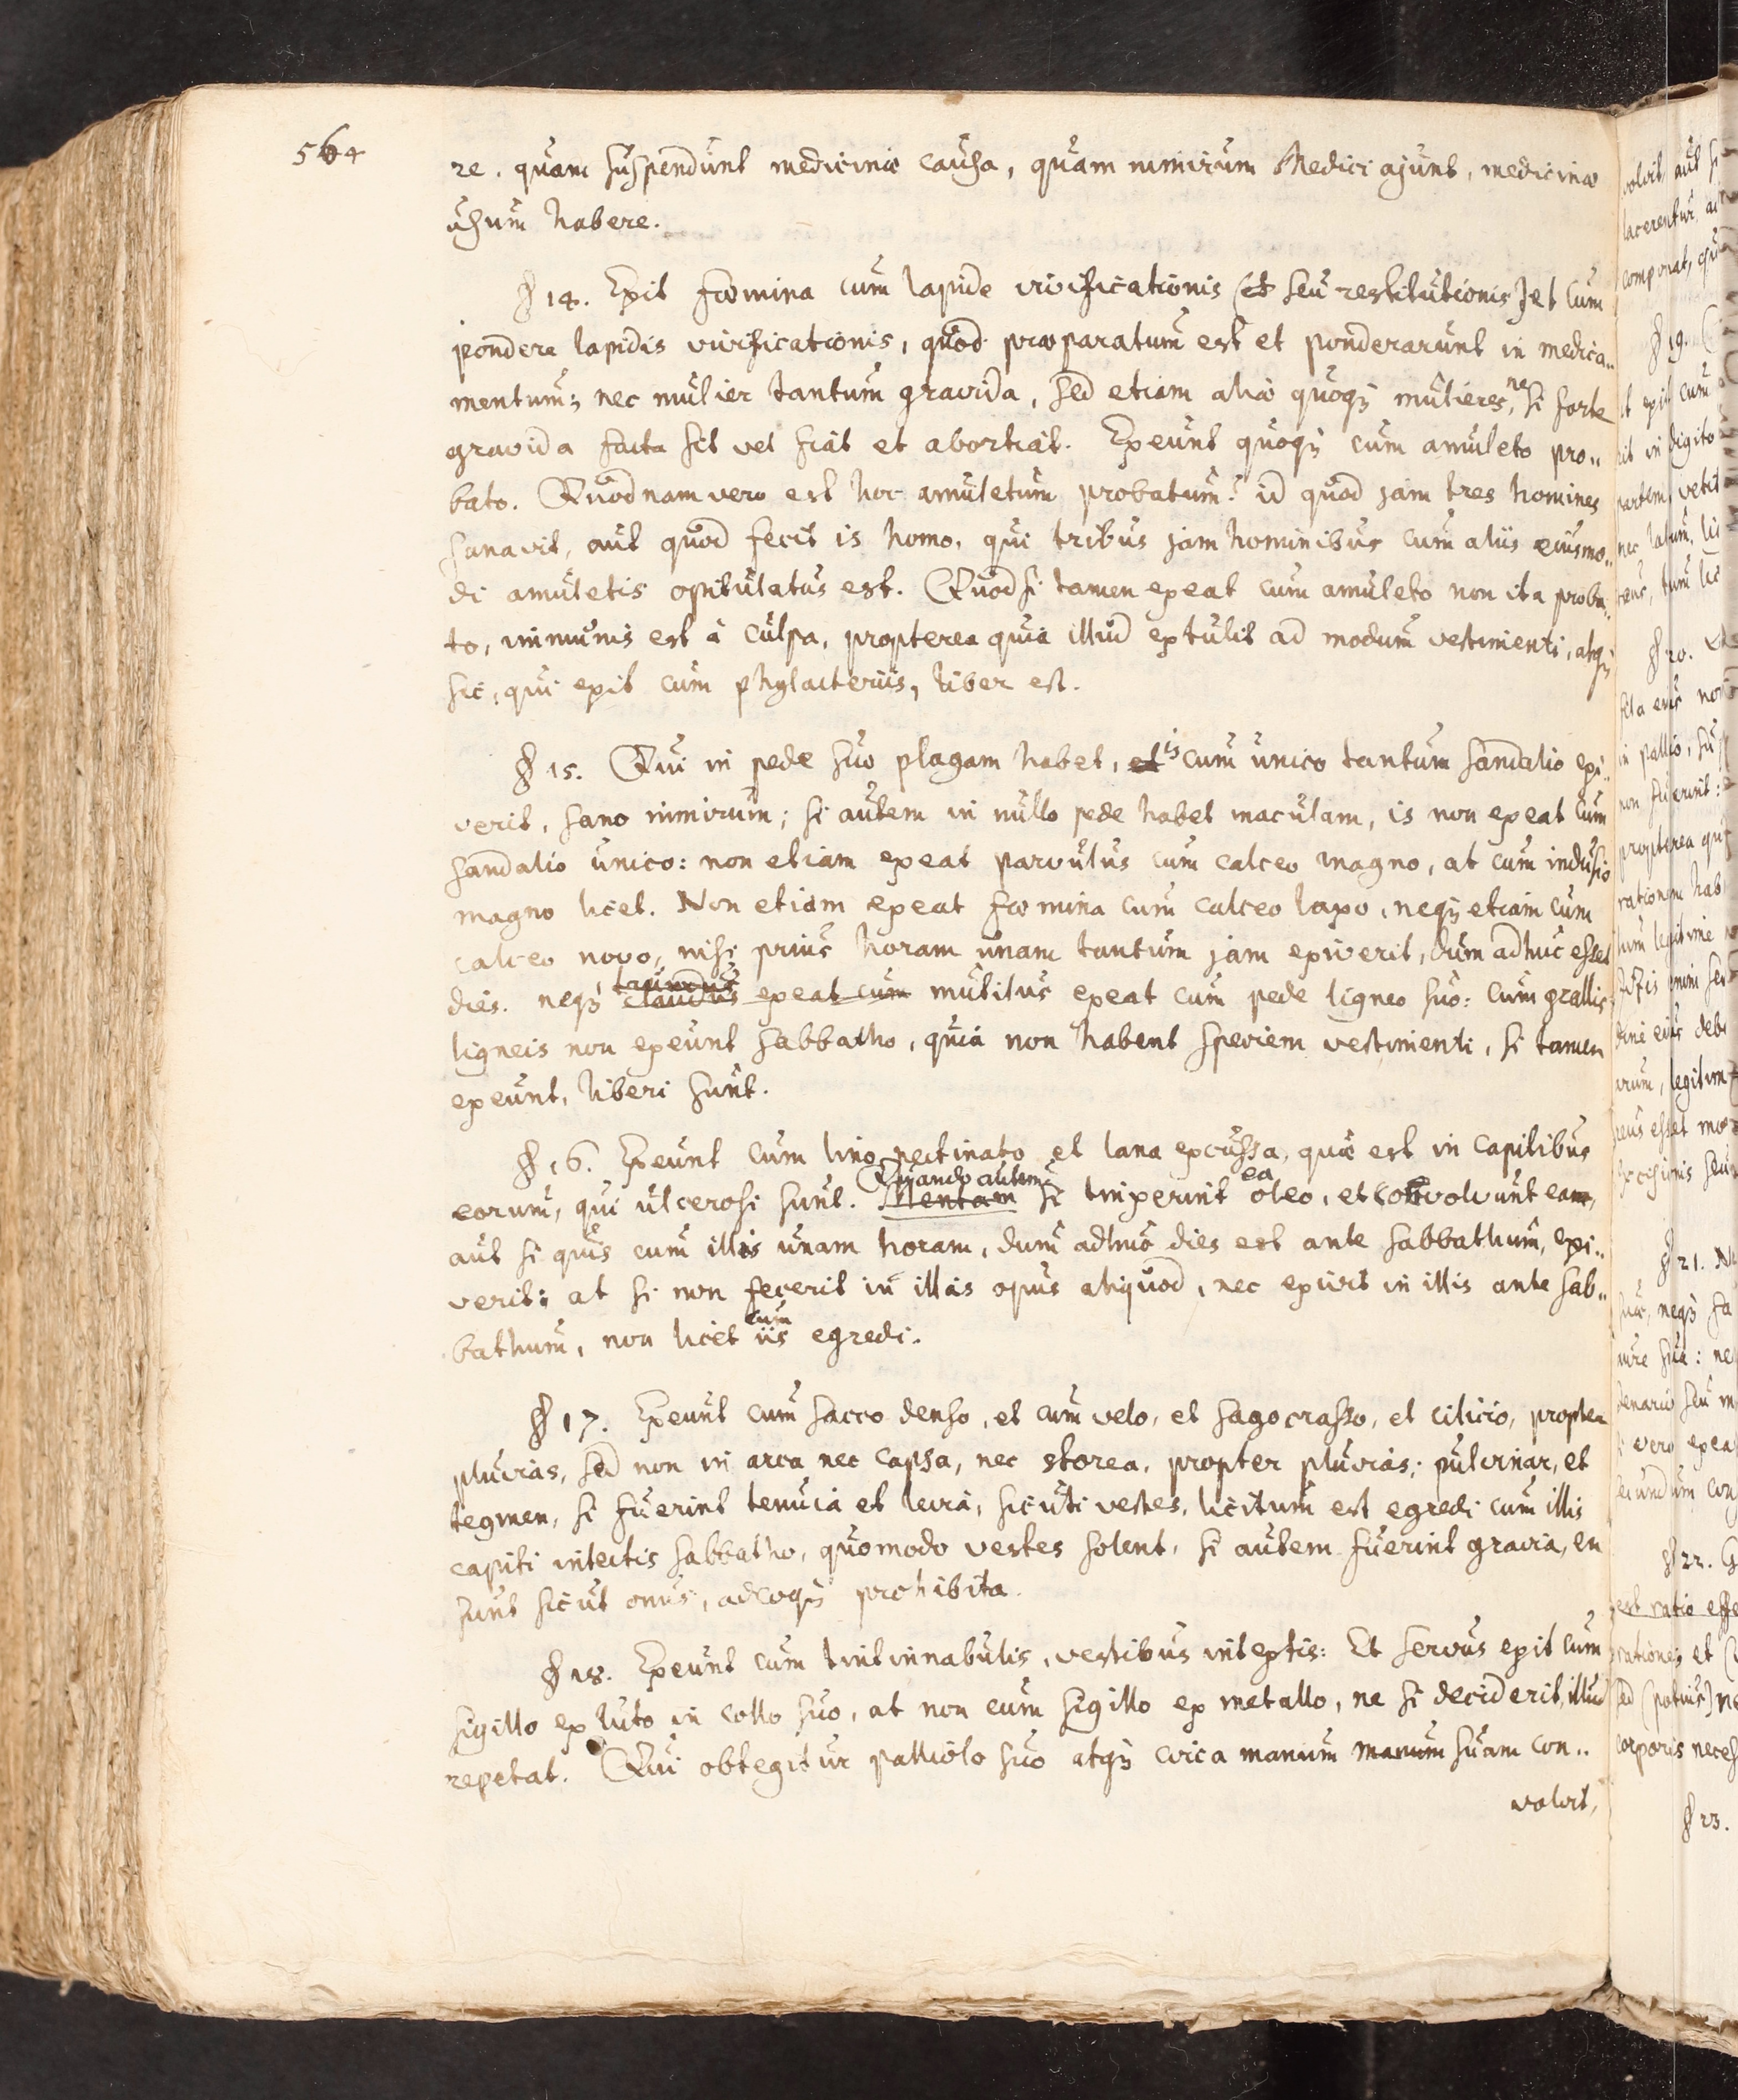 564
re. quam suspendunt medicinæ causa, quam nimirum Medici ajunt, medicinæ
usum habere.
§ 14. Exit fœmina cum lapide vivificationis (et seu restitutionis) et cum
pondere lapidis vivificationis, quod præparatum est et ponderarunt in medica..
mentum; nec mulier tantum gravida, sed etiam aliæ quoqꝫ mulieres, ne si forte
gravida facta sit vel fiat et abortiat. Exeunt quoqꝫ cum amuleto pro..
bato. Quodnam vero est hoc amuletum probatum? id quod jam tres homines
sanavit, aut quod fecit is homo, qui tribus jam hominibus cum aliis eiusmo..
di amuletis opitulatus est. Quod si tamen exeat cum amuleto non ita proba..
to, immunis est à culpa, propterea quia illud extulit ad modum vestimenti, atqꝫ
sic, qui exit cum phylacteriis, liber est.
§ 15. Qui in pede suo plagam habet, et is cum unico tantum sandalio exi..
verit, sano nimirum; si autem in nullo pede habet maculam, is non exeat cum
sandalio unico: non etiam exeat parvulus cum calceo magno, at cum indusio
magno licet. Non etiam exeat fœmina cum calceo laxo, neqꝫ etiam cum
calceo novo, nisi prius horam unam tantum jam exiverit, dum adhuc esset
dies. neqꝫ truncus claudus exeat cum mutilus exeat cum pede ligneo suo: cum grallis
ligneis non exeunt Sabbatho, quia non habent speciem vestimenti, si tamen
exeunt, liberi sunt.
§ 16. Exeunt cum lino pectinato et lana excussa, quæ est in capitibus
eorum, qui ulcerosi sunt. Quando autem si tinxerint ea oleo, et convolvunt eam,
aut si quis cum illis unam horam, dum adhuc dies est ante Sabbathum, exi..
verit: at si non fecerit in illis opus aliquod, nec exivit in illis ante Sab..
bathum, non licet cum iis egredi.
§ 17. Exeunt cum sacco denso, et cum velo, et sago crasso, et cilicio, propter
pluvias, sed non in arca nec capsa, nec storea, propter pluvias; pulvinar, et
tegmen, si fuerint tenuia et levia, sicuti vestes, licitum est egredi cum illis
capiti intectis Sabbatho, quomodo vestes solent, si autem fuerint gravia, en
sunt sicut onus, adeoqꝫ prohibita.
§ 18. Exeunt cum tintinnabulis, vestibus intextis: Et servus exit cum
sigillo ex luto in collo suo, at non cum sigillo ex metallo, ne si deciderit, illud
repetat. Qui obtegitur palliolo suo atqꝫ circa manum manum suam con..
volvit,